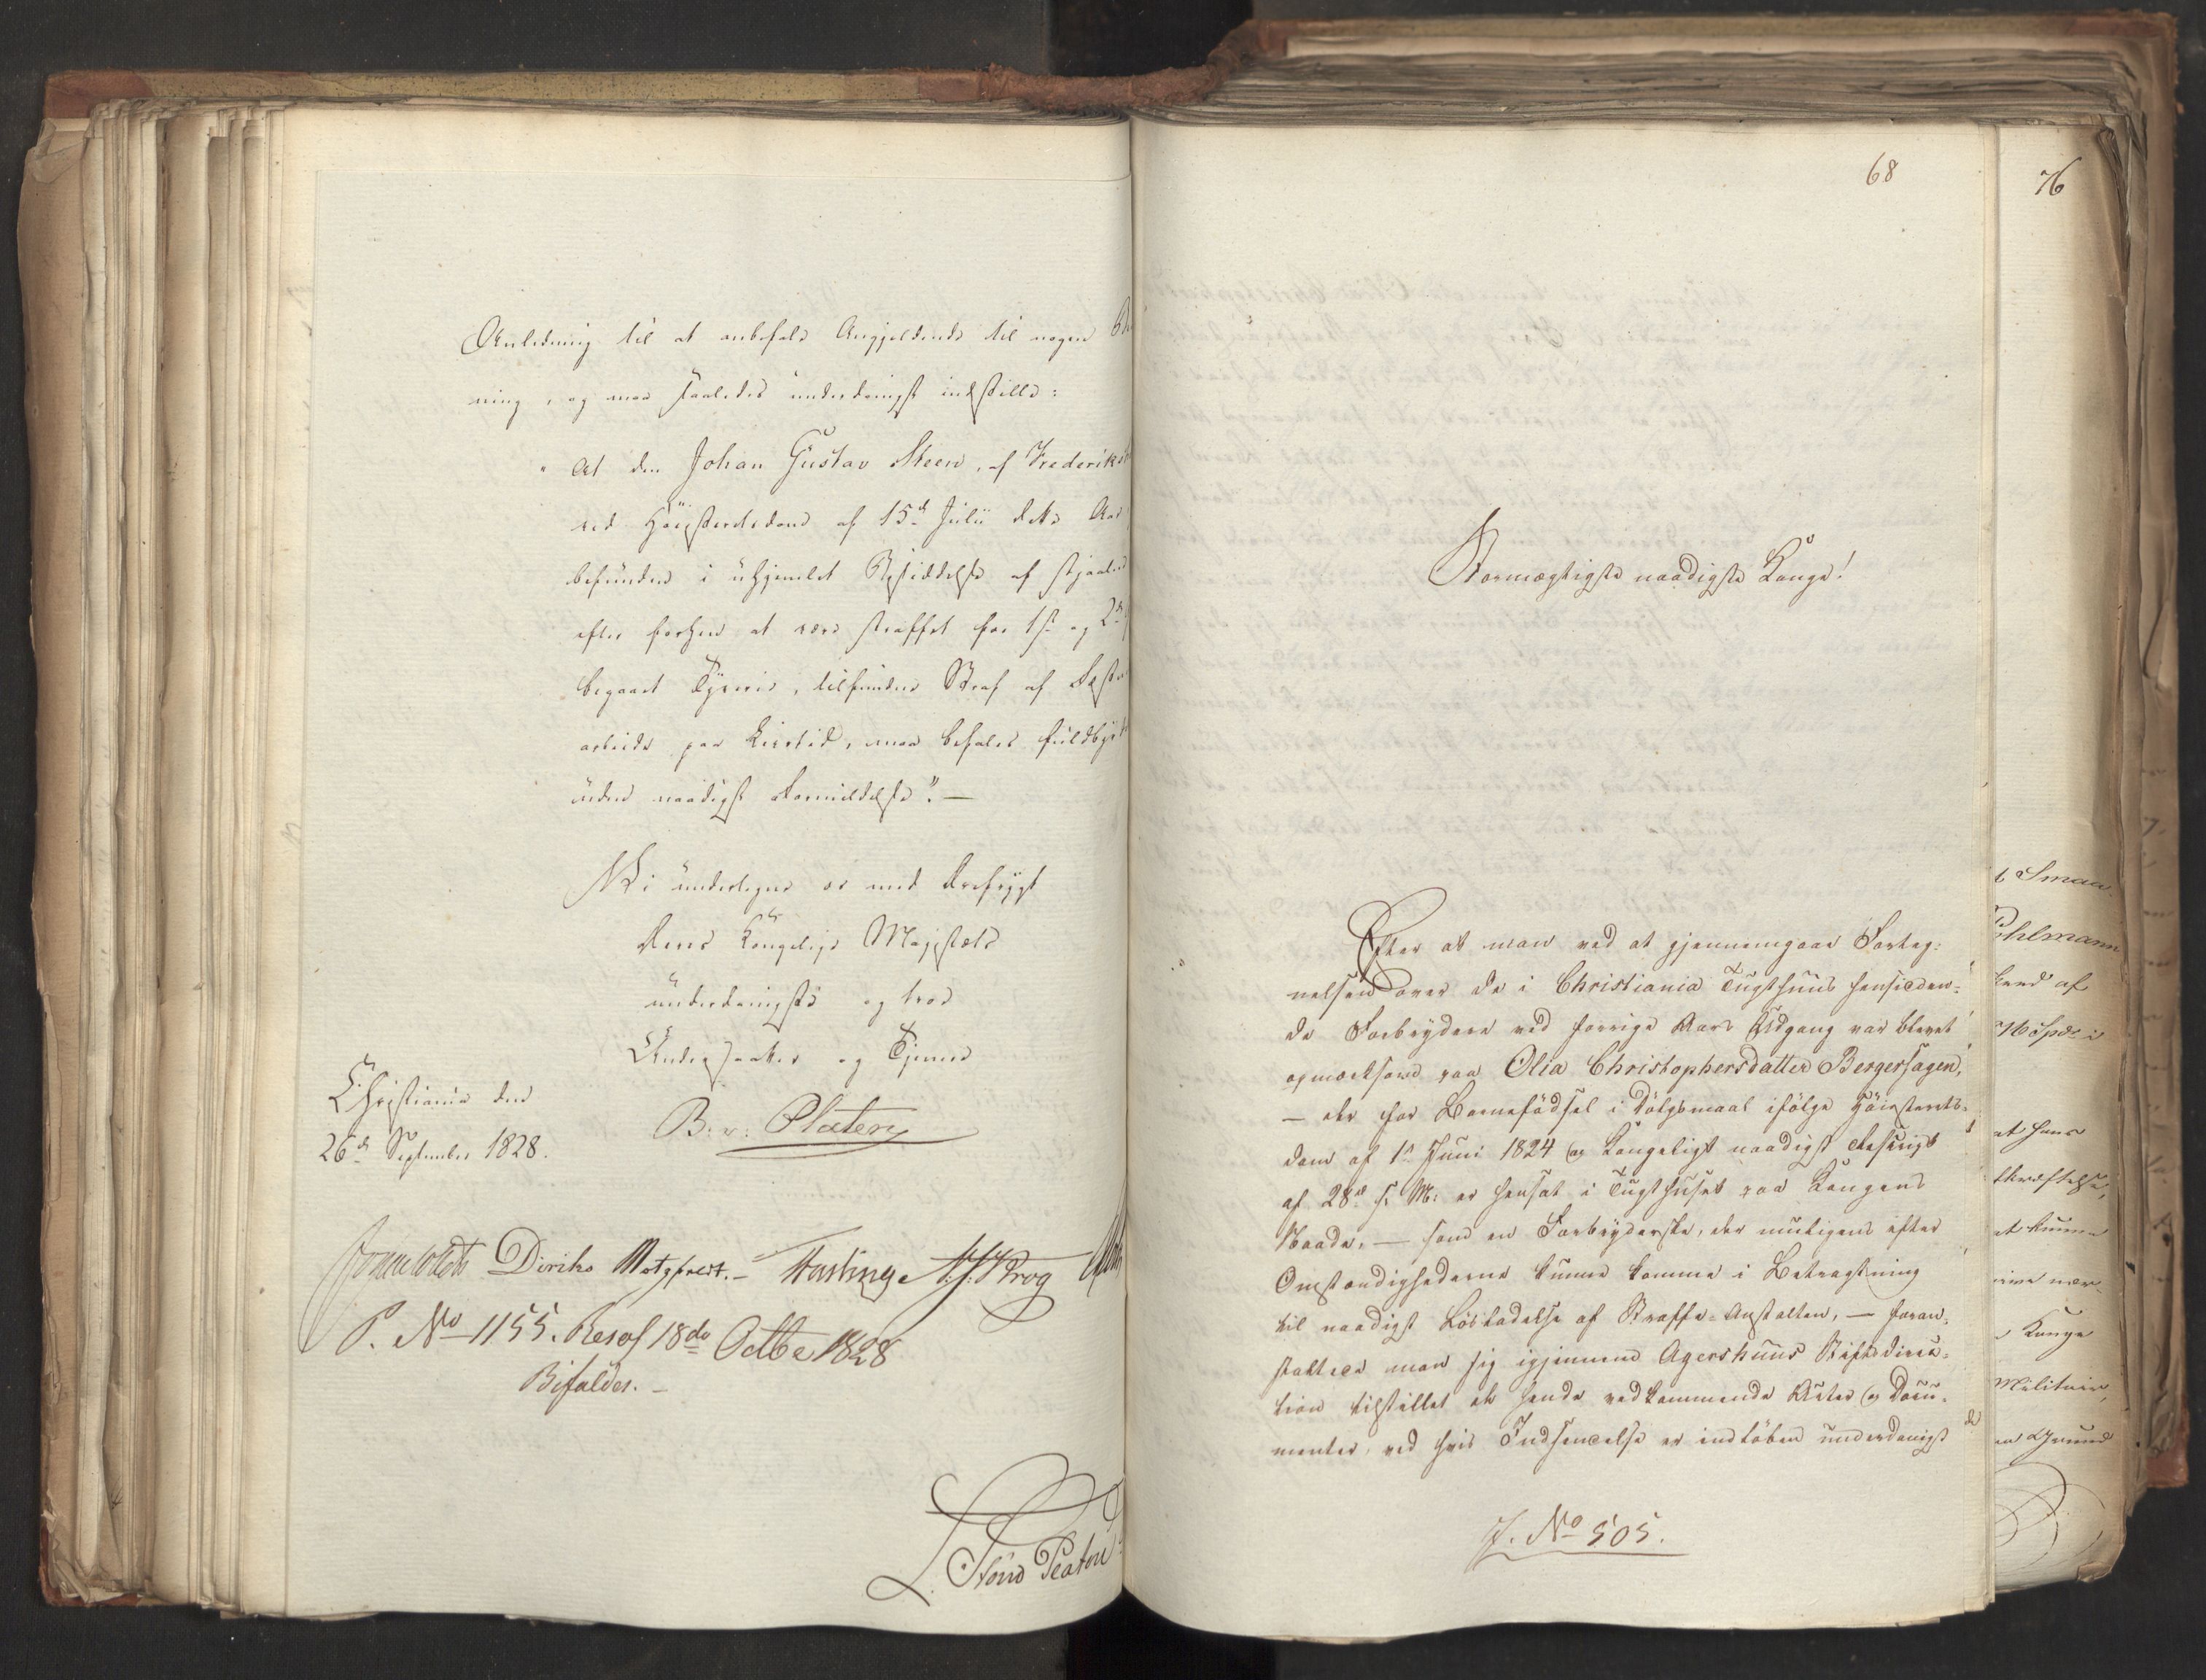 Anledning til at anbefale Angjeldende til nogen
ning, og maa saaledes underdanigst indstille:
"At den Johan Gustav Steen, af Frederiks
ved Høiesterets dom af 15de Julii dette Aar
befunden i uhjemlet Besiddelse af stjaalne
efter forhen at være straffet for 1ste og 2de
begaaet Tyverie, tilfundne Straf af Fæst
arbeide paa Livstid, maa befales fuldbyrd
uden naadigst Formildelse". —
Vi undertegne os med Ærefrygt
Deres Kongelige Majestæts
underdanigste og troe
Undersaatter og Tjenere
Christiania den
26de September 1828.
B. v. Platen
Diriks Motzfeldt. – N. J. Krog
P. No 1155. Resol 18de Octbr 1828
Bifaldes. –
68
76
Stormægtigste naadigste Konge!
Efter at man ved at gjennemgaae Forteg-
nelsen over de i Christiania Tugthuus hensidden-
de Forbrydere ved forrige Aars Udgang var blevet
opmærksom paa Olia Christophersdatter Bergersagen,
– der for Barnefødsel i Dølgsmaal ifølge Høiesterets-
dom af 1ste Juni 1824 og Kongeligt naadigst Rescript
af 28de s. M: er hensat i Tugthuset paa Kongens
Naade, – som en Forbryderske, der muligens efter
Omstændighederne kunne komme i Betragtning
til naadigst Løsladelse af Straffe-Anstalten, – foran-
staltede man sig igjennem Agershuus Stiftsdirec-
tion tilstillet de hende vedkommende Acter og Docu-
menter, ved hvis Indsendelse er indløben underdanigst
J. No 505.
t Smaa
ihlmann
land af
at hans
at kunne
Konge
Militair,
en Grund